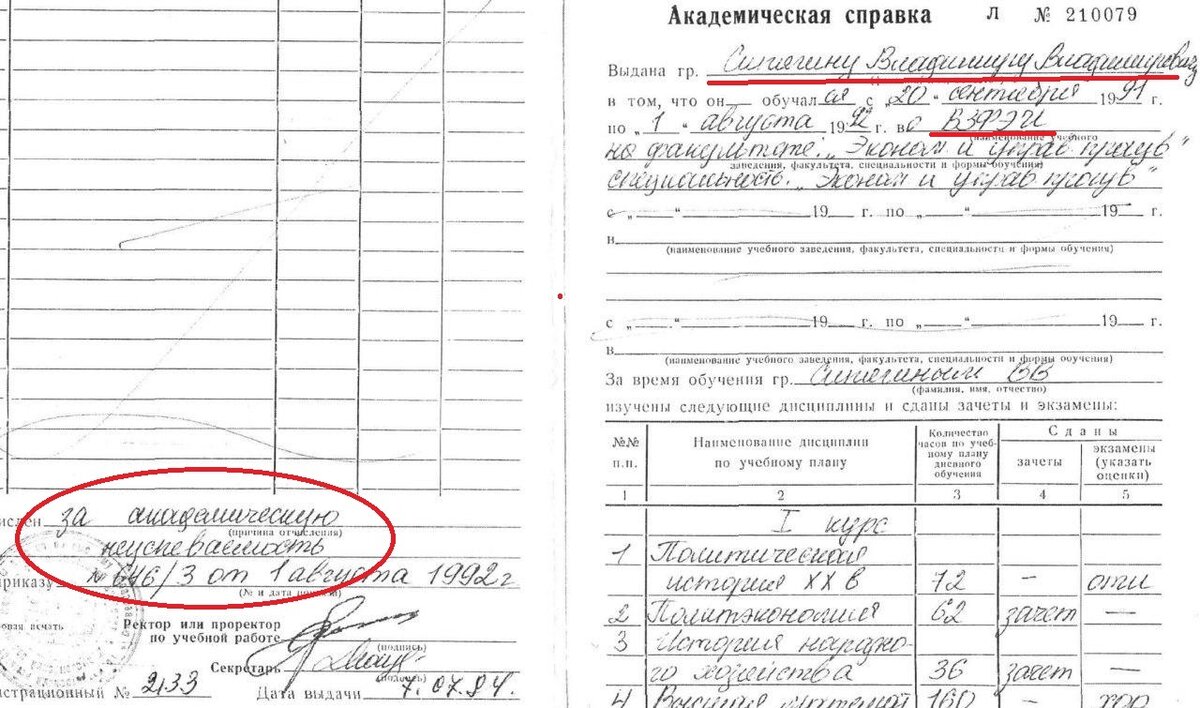 числен за академическую
(причина отчисления)
неуспеваемость
приказу № 646/3 от 1 августа 1992 г
(№ и дата приказа)
овая печать
Ректор или проректор
по учебной работе
(подпись)
Секретарь
(подпись)
истрационный № 2133 Дата выдачи 7.07.94.
Академическая справка Л № 210079
Выдана гр. Синягину Владимиру Владимировичу
в том, что он обучал ся с „20“ сентября 1991 г.
по „1“ августа 1992 г. во ВЗФЭИ
(наименование учебного
на факультете. „Эконом и управ произв“
заведения, факультета, специальности и формы обучения)
специальность. „Эконом и управ произв“
с „ “ 19 г. по „ “ 19 г.
в
(наименование учебного заведения, факультета, специальности и формы обучения)
с „ “ 19 г. по „ “ 19 г.
в
(наименование учебного заведения, факультета, специальности и формы обучения)
За время обучения гр. Синягиным ВВ
(фамилия, имя, отчество)
изучены следующие дисциплины и сданы зачеты и экзамены:
№№ п.п. Наименование дисциплин по учебному плану Количество часов по учебному плану дневного обучения Сданы зачеты экзамены (указать оценки)
1 2 3 4 5
I курс
1 Политическая
история XX в 72 – отл
2 Политэкономия 62 зачет —
3 История народно-
го хозяйства 36 зачет —
4 Высшая математ 160 – хор